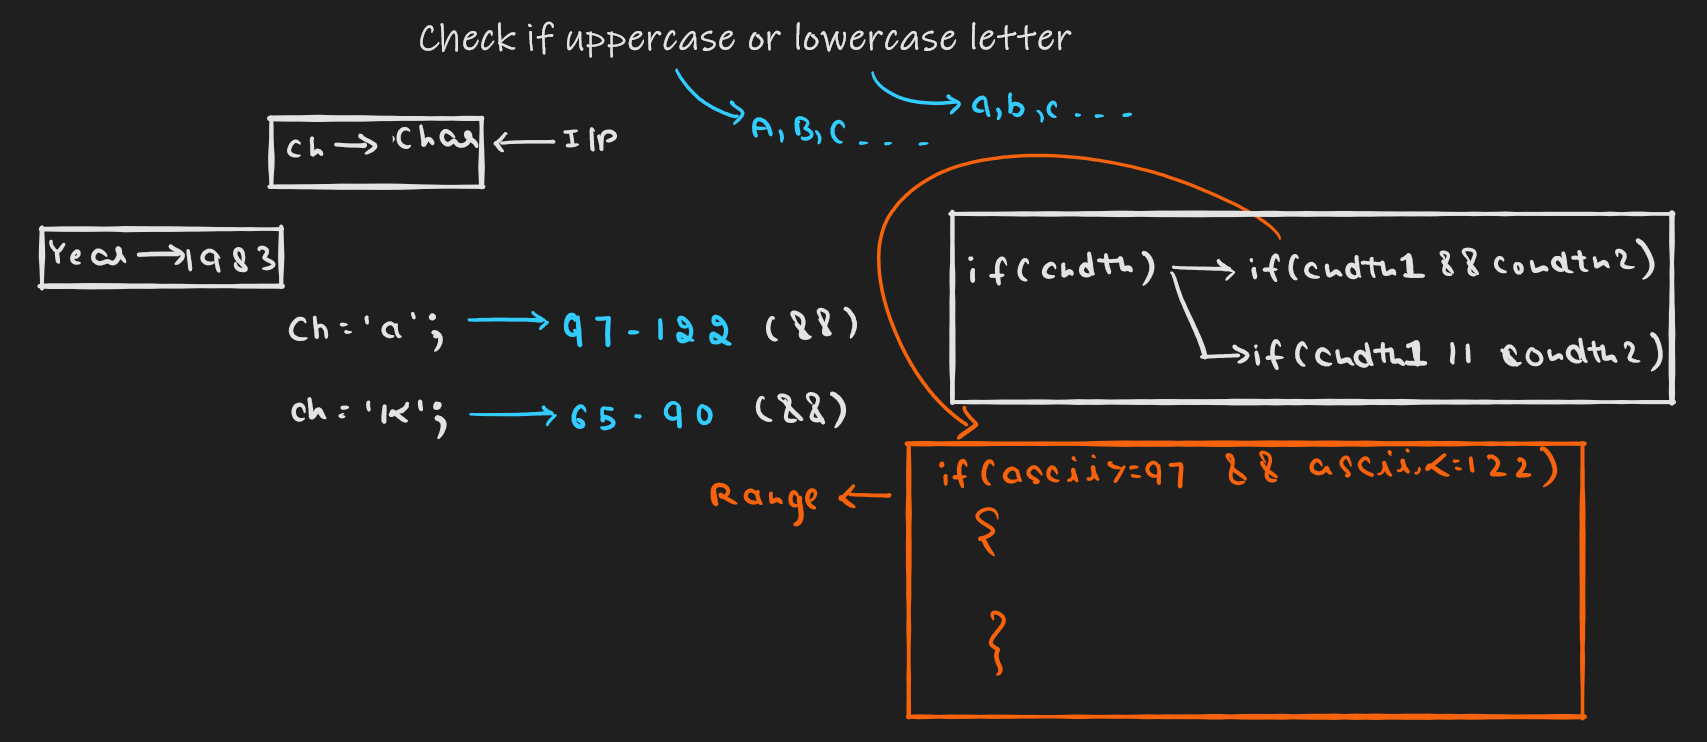 Check if uppercase or lowercase letter
A, B, C - - -
a, b, c - - -
ch → Char ← I/P
Year → 1983
ch = 'a'; → 97 - 122 (&&)
ch = 'K'; → 65 - 90 (&&)
if(cndtn) → if(cndtn1 && condtn2)
→ if(cndtn1 || condtn2)
Range ← if(ascii>=97 && ascii<=122)
{
}